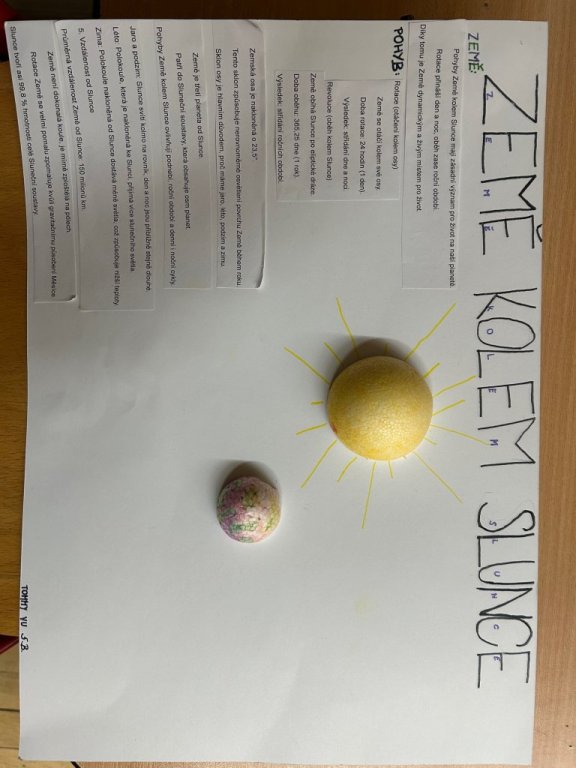 ZEMĚ KOLEM SLUNCE
ZEMĚ KOLEM SLUNCE
ZEMĚ:
Pohyby Země kolem Slunce mají zásadní význam pro život na naší planetě.
Rotace přináší den a noc, oběh zase roční období.
Díky tomu je Země dynamickým a živým místem pro život.
POHYB:
Rotace (otáčení kolem osy)
Země se otáčí kolem své osy.
Doba rotace: 24 hodin (1 den).
Výsledek: střídání dne a noci.
Revoluce (oběh kolem Slunce)
Země obíhá Slunce po eliptické dráze.
Doba oběhu: 365,25 dne (1 rok).
Výsledek: střídání ročních období.
Zemská osa je nakloněná o 23,5°
Tento sklon způsobuje nerovnoměrné osvětlení povrchu Země během roku.
Sklon osy je hlavním důvodem, proč máme jaro, léto, podzim a zimu.
Země je třetí planeta od Slunce.
Patří do Sluneční soustavy, která obsahuje osm planet.
Pohyby Země kolem Slunce ovlivňují podnebí, roční období a denní i noční cykly.
Jaro a podzim: Slunce svítí kolmo na rovník, den a noc jsou přibližně stejně dlouhé.
Léto: Polokoule, která je nakloněná ke Slunci, přijímá více slunečního světla.
Zima: Polokoule nakloněná od Slunce dostává méně světla, což způsobuje nižší teploty.
5. Vzdálenost od Slunce
Průměrná vzdálenost Země od Slunce: 150 milionů km.
Země není dokonalá koule, je mírně zploštělá na pólech.
Rotace Země se velmi pomalu zpomaluje kvůli gravitačnímu působení Měsíce.
Slunce tvoří asi 99,8 % hmotnosti celé Sluneční soustavy.
TOMMY VU 5.B.